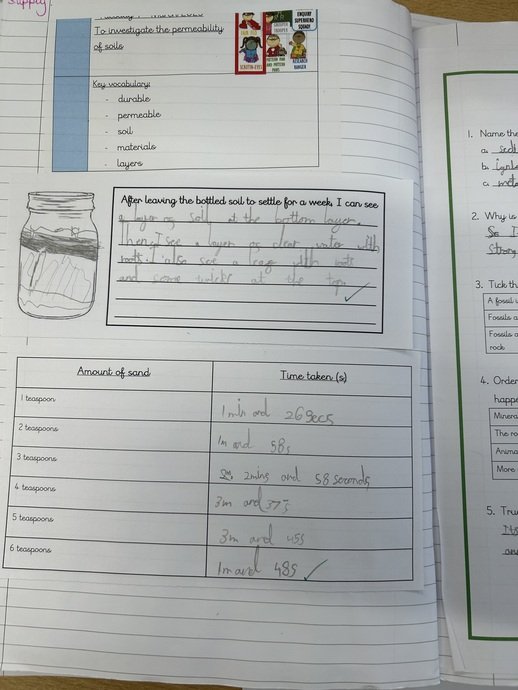 supply
To investigate the permeability
of soils
ENQUIRY
SUPERHERO
SQUAD
RESEARCH
RANGER
Key vocabulary:
- durable
- permeable
- soil
- materials
- layers
After leaving the bottled soil to settle for a week, I can see
a layer of soil at the bottom layer.
Then I see a layer of clear water with
roots. I also see a with roots
and some at the top.
Amount of sand
Time taken (s)
1 teaspoon
1 min and 26 secs
2 teaspoons
1m and 58s
3 teaspoons
2mins and 58 seconds
4 teaspoons
3m and 37s
5 teaspoons
3m and 45s
6 teaspoons
1m and 48s
1. Name the
a.
b.
c.
2. Why is
Strong
3. Tick th
A fossil i
Fossils a
Fossils a
rock
4. Order
happe
Minera
The ro
Anima
More
5. Tru